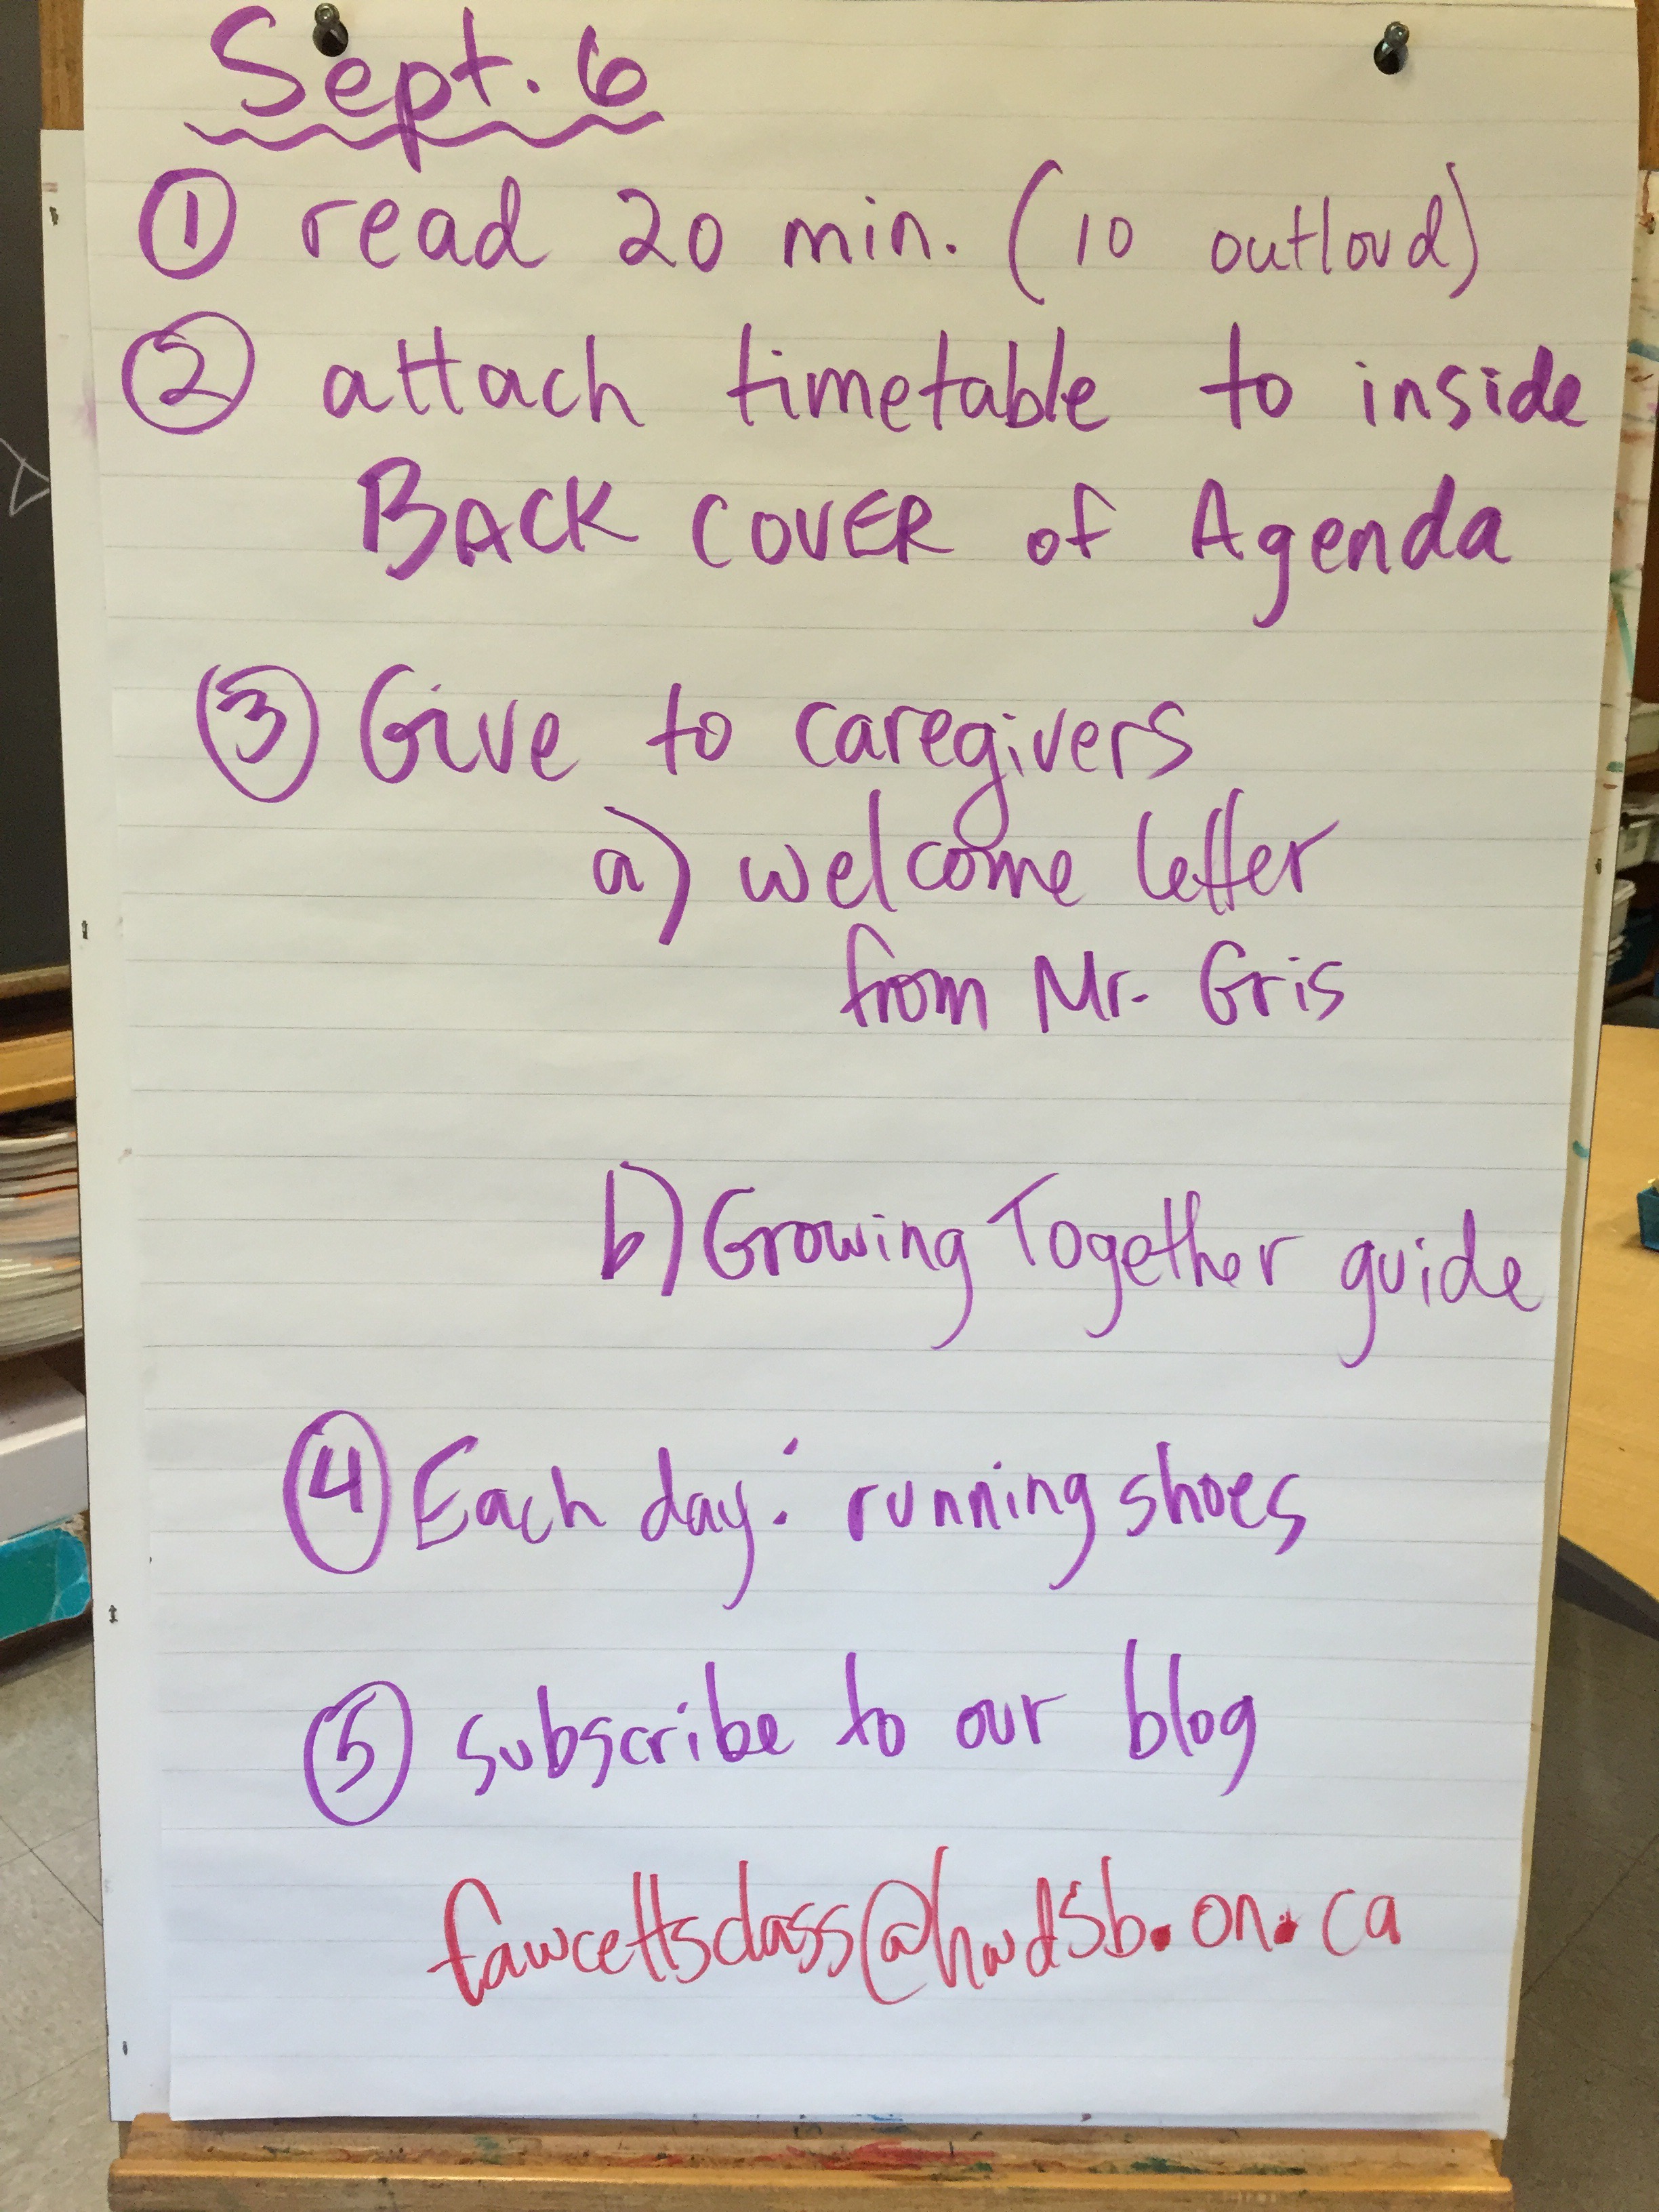 Sept. 6
① read 20 min. (10 outloud)
② attach timetable to inside
BACK COVER of Agenda
③ Give to caregivers
a) welcome letter
from Mr. Gris
b) Growing Together guide
④ Each day: running shoes
⑤ subscribe to our blog
fawcettsclass@hwdsb.on.ca